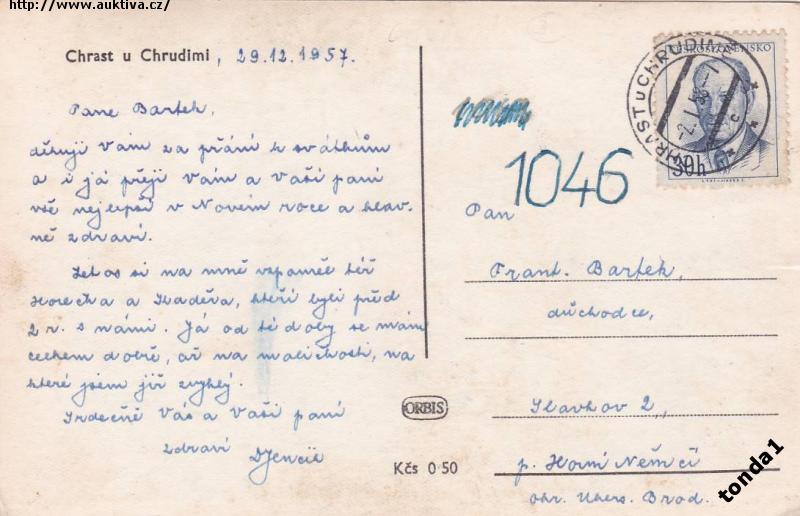 http://www.auktiva.cz/
Chrast u Chrudimi, 29.12.1957.
Pane Bartek,
děkuji Vám za přání k svátkům
a i já přeji Vám a Vaší paní
vše nejlepší v Novém roce a hlav-
ně zdraví.
Letos si na mně vzpoměl též
Horecka a Sladěva, kteří byli před
2 r. s námi. Já od té doby se mám
celkem dobře, až na maličkosti, na
které jsem již zvyklý.
Srdečně Vás a Vaší paní
zdraví
ORBIS
Kčs 0·50
ČESKOSLOVENSKO
CHRAST U CHRUDIMĚ
-2.I.58-
c
30h
1046
Pan
Frant. Bartek,
důchodce,
Slavkov 2,
p. Horní Němčí
okr. Uhers. Brod.
tonda1